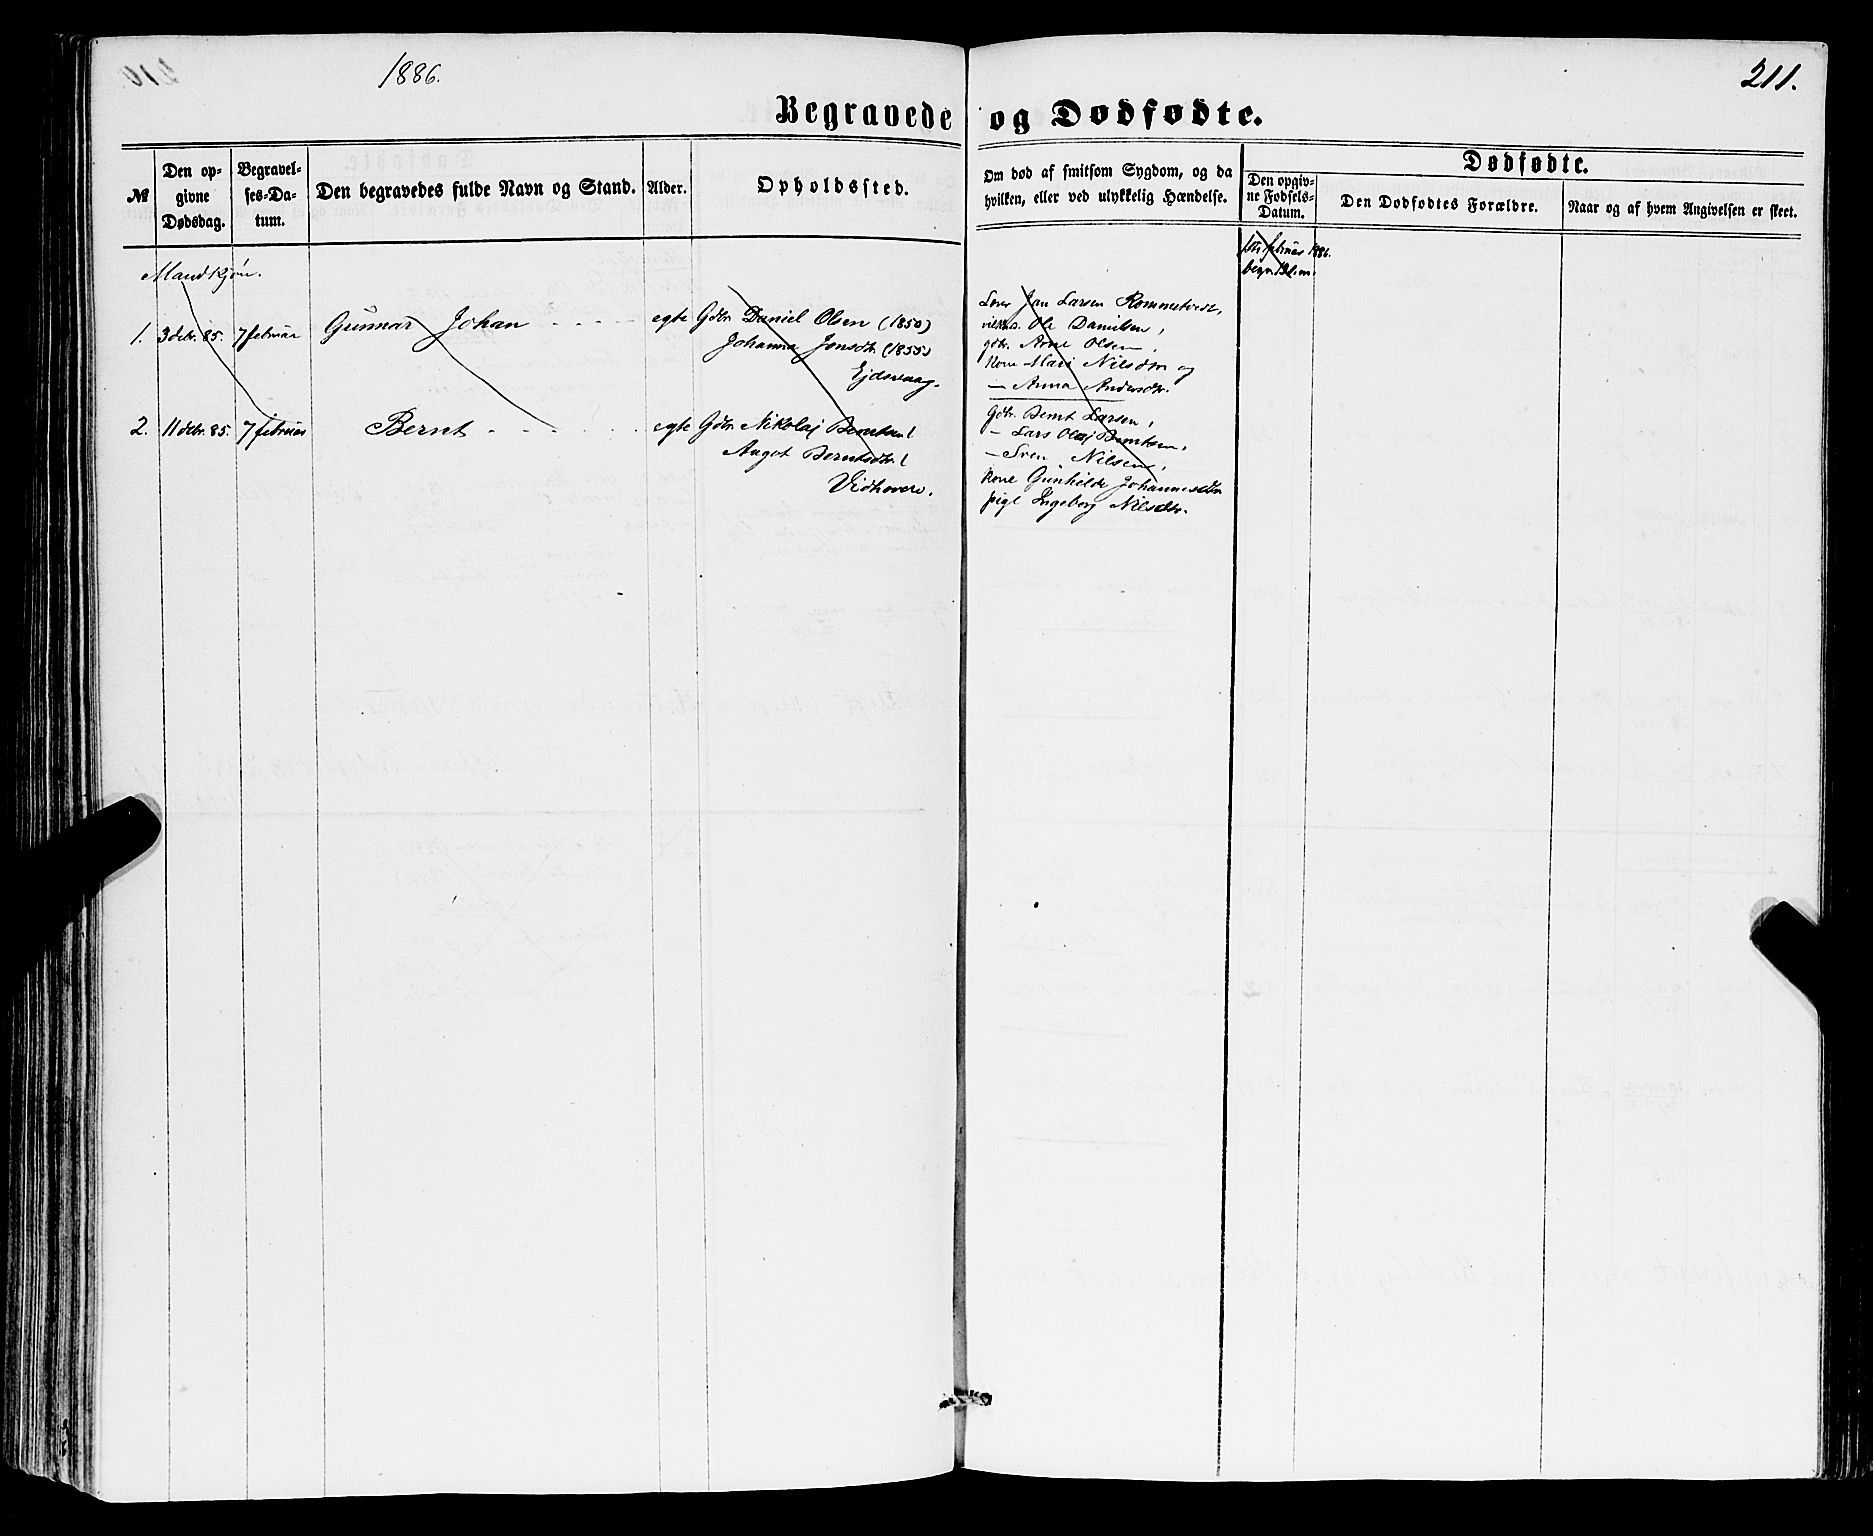 1886.
211.
Begravede og Dødfødte.
№
Den opgivne Dødsdag.
Begravelses-Datum.
Den begravedes fulde Navn og Stand.
Alder.
Opholdssted.
Om død af smitsom Sygdom, og da hvilken, eller ved ulykkelig Hændelse.
Dødfødte.
Den opgivne Fødsels-Datum.
Den Dødfødtes Forældre.
Naar og af hvem Angivelsen er skeet.
februar 1886.
Mandkjøn.
1. 3 debr. 85. 7 februar Gunnar Johan egte Gdbr. Daniel Olsen (1850)
Johanna Jonsdtr. (1855)
Ejdsvaag.
Lærer Jan Larsen Rommetvedt,
Ole Danielsen,
gdbr. Arne Olsen,
Kone Mari Nilsdtr og
— Anna Andersdtr.
2. 11 debr. 85. 7 februar Bernt egte Gdbr. Nikolaj Berntsen (
Angot Berntsdtr. (
Vidhovere.
Gdbr. Bernt Larsen,
— Lars Olaj Berntsen,
— Sven Nilsen,
Kone Gunhilde Johannesdtr
pige Ingeborg Nilsdtr.